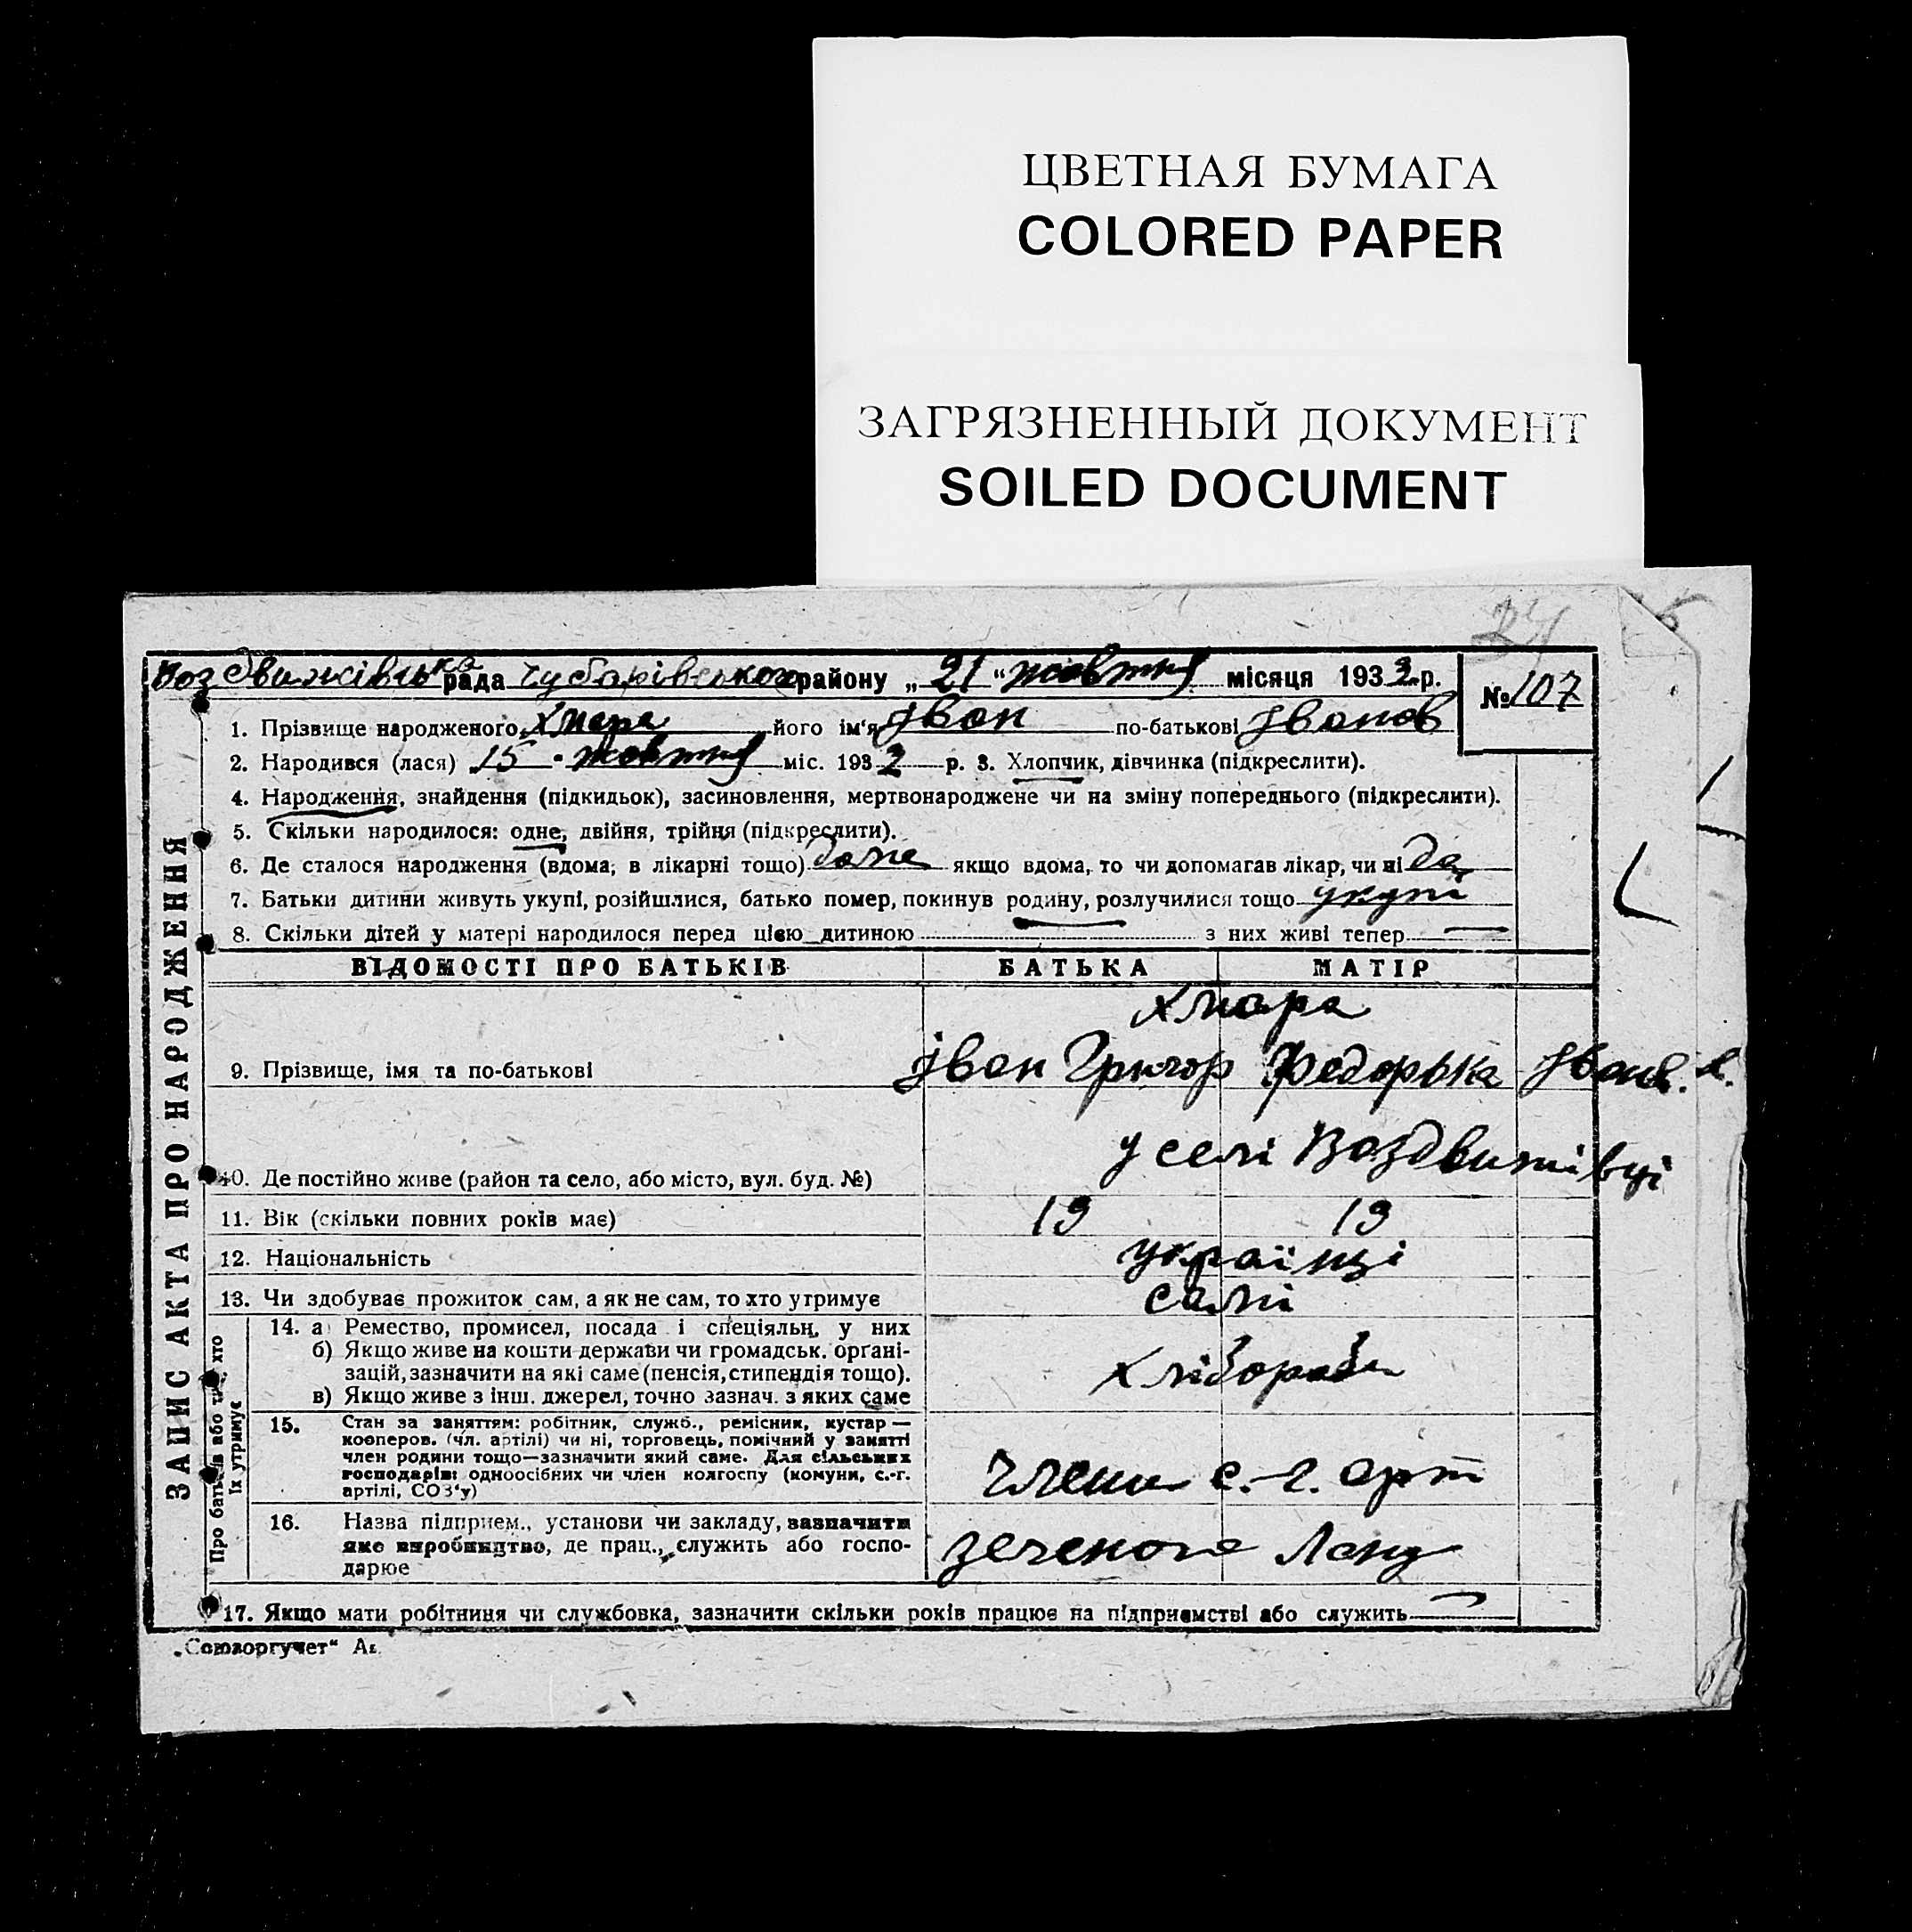 ЦВЕТНАЯ БУМАГА
COLORED PAPER
ЗАГРЯЗНЕННЫЙ ДОКУМЕНТ
SOILED DOCUMENT
34
Воздвижівська рада Чубарівського району „21" жовтня місяця 1932 р. № 107
1. Прізвище народженого Хмара його ім'я Іван по-батькові Іванов
2. Народився (лася) 15 - жовтня міс. 1932 р. 3. Хлопчик, дівчинка (підкреслити).
4. Народження, знайдення (підкидьок), засиновлення, мертвонароджене чи на зміну попереднього (підкреслити).
5. Скільки народилося: одне, двійня, трійця (підкреслити).
6. Де сталося народження (вдома, в лікарні тощо) доме якщо вдома, то чи допомагав лікар, чи ні да
7. Батьки дитини живуть укупі, розійшлися, батько помер, покинув родину, розлучилися тощо укупі
8. Скільки дітей у матері народилося перед цією дитиною — з них живі тепер —
ЗАПИС АКТА ПРО НАРОДЖЕННЯ
ВІДОМОСТІ ПРО БАТЬКІВ БАТЬКА МАТІР
Хмара
9. Прізвище, імя та по-батькові Іван Григор Федорька Іванів.
10. Де постійно живе (район та село, або місто, вул. буд. №) у селі Воздвижівці
11. Вік (скільки повних років має) 19 19
12. Національність українці
13. Чи здобуває прожиток сам, а як не сам, то хто утримує самі
Про батьків або тих, хто
їх утримує
14. а) Ремество, промисел, посада і спеціяльн, у них
б) Якщо живе на кошти держави чи громадськ. органі-
зацій, зазначити на які саме (пенсія, стипендія тощо).
в) Якщо живе з інш. джерел, точно зазнач. з яких саме
хлібороби
15. Стан за заняттям: робітник, служб., ремісник, кустар —
кооперов. (чл. артілі) чи ні, торговець, помічний у занятті
член родини тощо—зазначити який саме. Для сільських
господарів: одноосібних чи член колгоспу (комуни, с.-г.
артілі, СОЗ'у)
члени с.-г. арт
16. Назва підприєм., установи чи закладу, зазначити
яке виробництво, де прац., служить або госпо-
дарює
Лану
17. Якщо мати робітниця чи службовка, зазначити скільки років працює на підприємстві або служить —
„Союзоргучет"